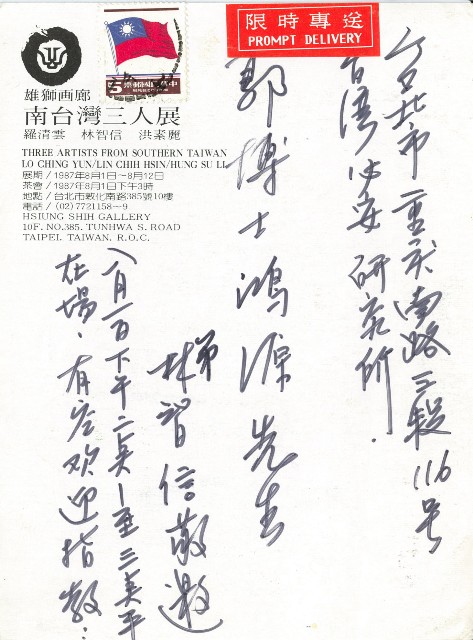 限時專送
PROMPT DELIVERY
中華民國郵票
5
雄獅画廊
南台灣三人展
羅清雲 林智信 洪素麗
THREE ARTISTS FROM SOUTHERN TAIWAN
LO CHING YUN/LIN CHIH HSIN/HUNG SU LI
展期/1987年8月1日~8月12日
茶會/1987年8月1日下午3時
地點/台北市敦化南路385號10樓
電話/(02)7721158~9
HSIUNG SHIH GALLERY
10F. NO.385. TUNHWA S. ROAD
TAIPEI. TAIWAN. R.O.C.
台北市重庆南路三段116号
台湾 研究所.
郭博士鴻源先生
弟
林智信敬邀
八月一日下午二点-至三点半
在場.有空欢迎指教.